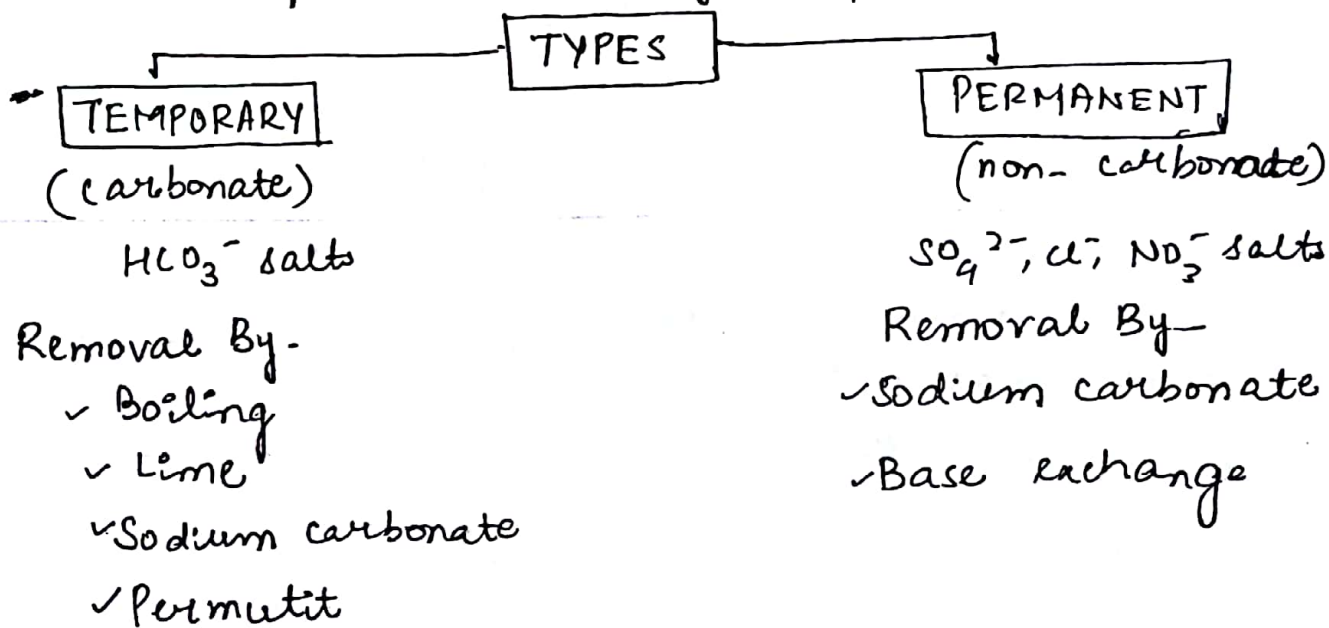 TYPES
TEMPORARY
(carbonate)
HCO₃⁻ salts
Removal By-
✓ Boiling
✓ Lime
✓ Sodium carbonate
✓ Permutit
PERMANENT
(non- carbonate)
SO₄²⁻, Cl⁻, NO₃⁻ salts
Removal By-
✓ Sodium carbonate
✓ Base exchange